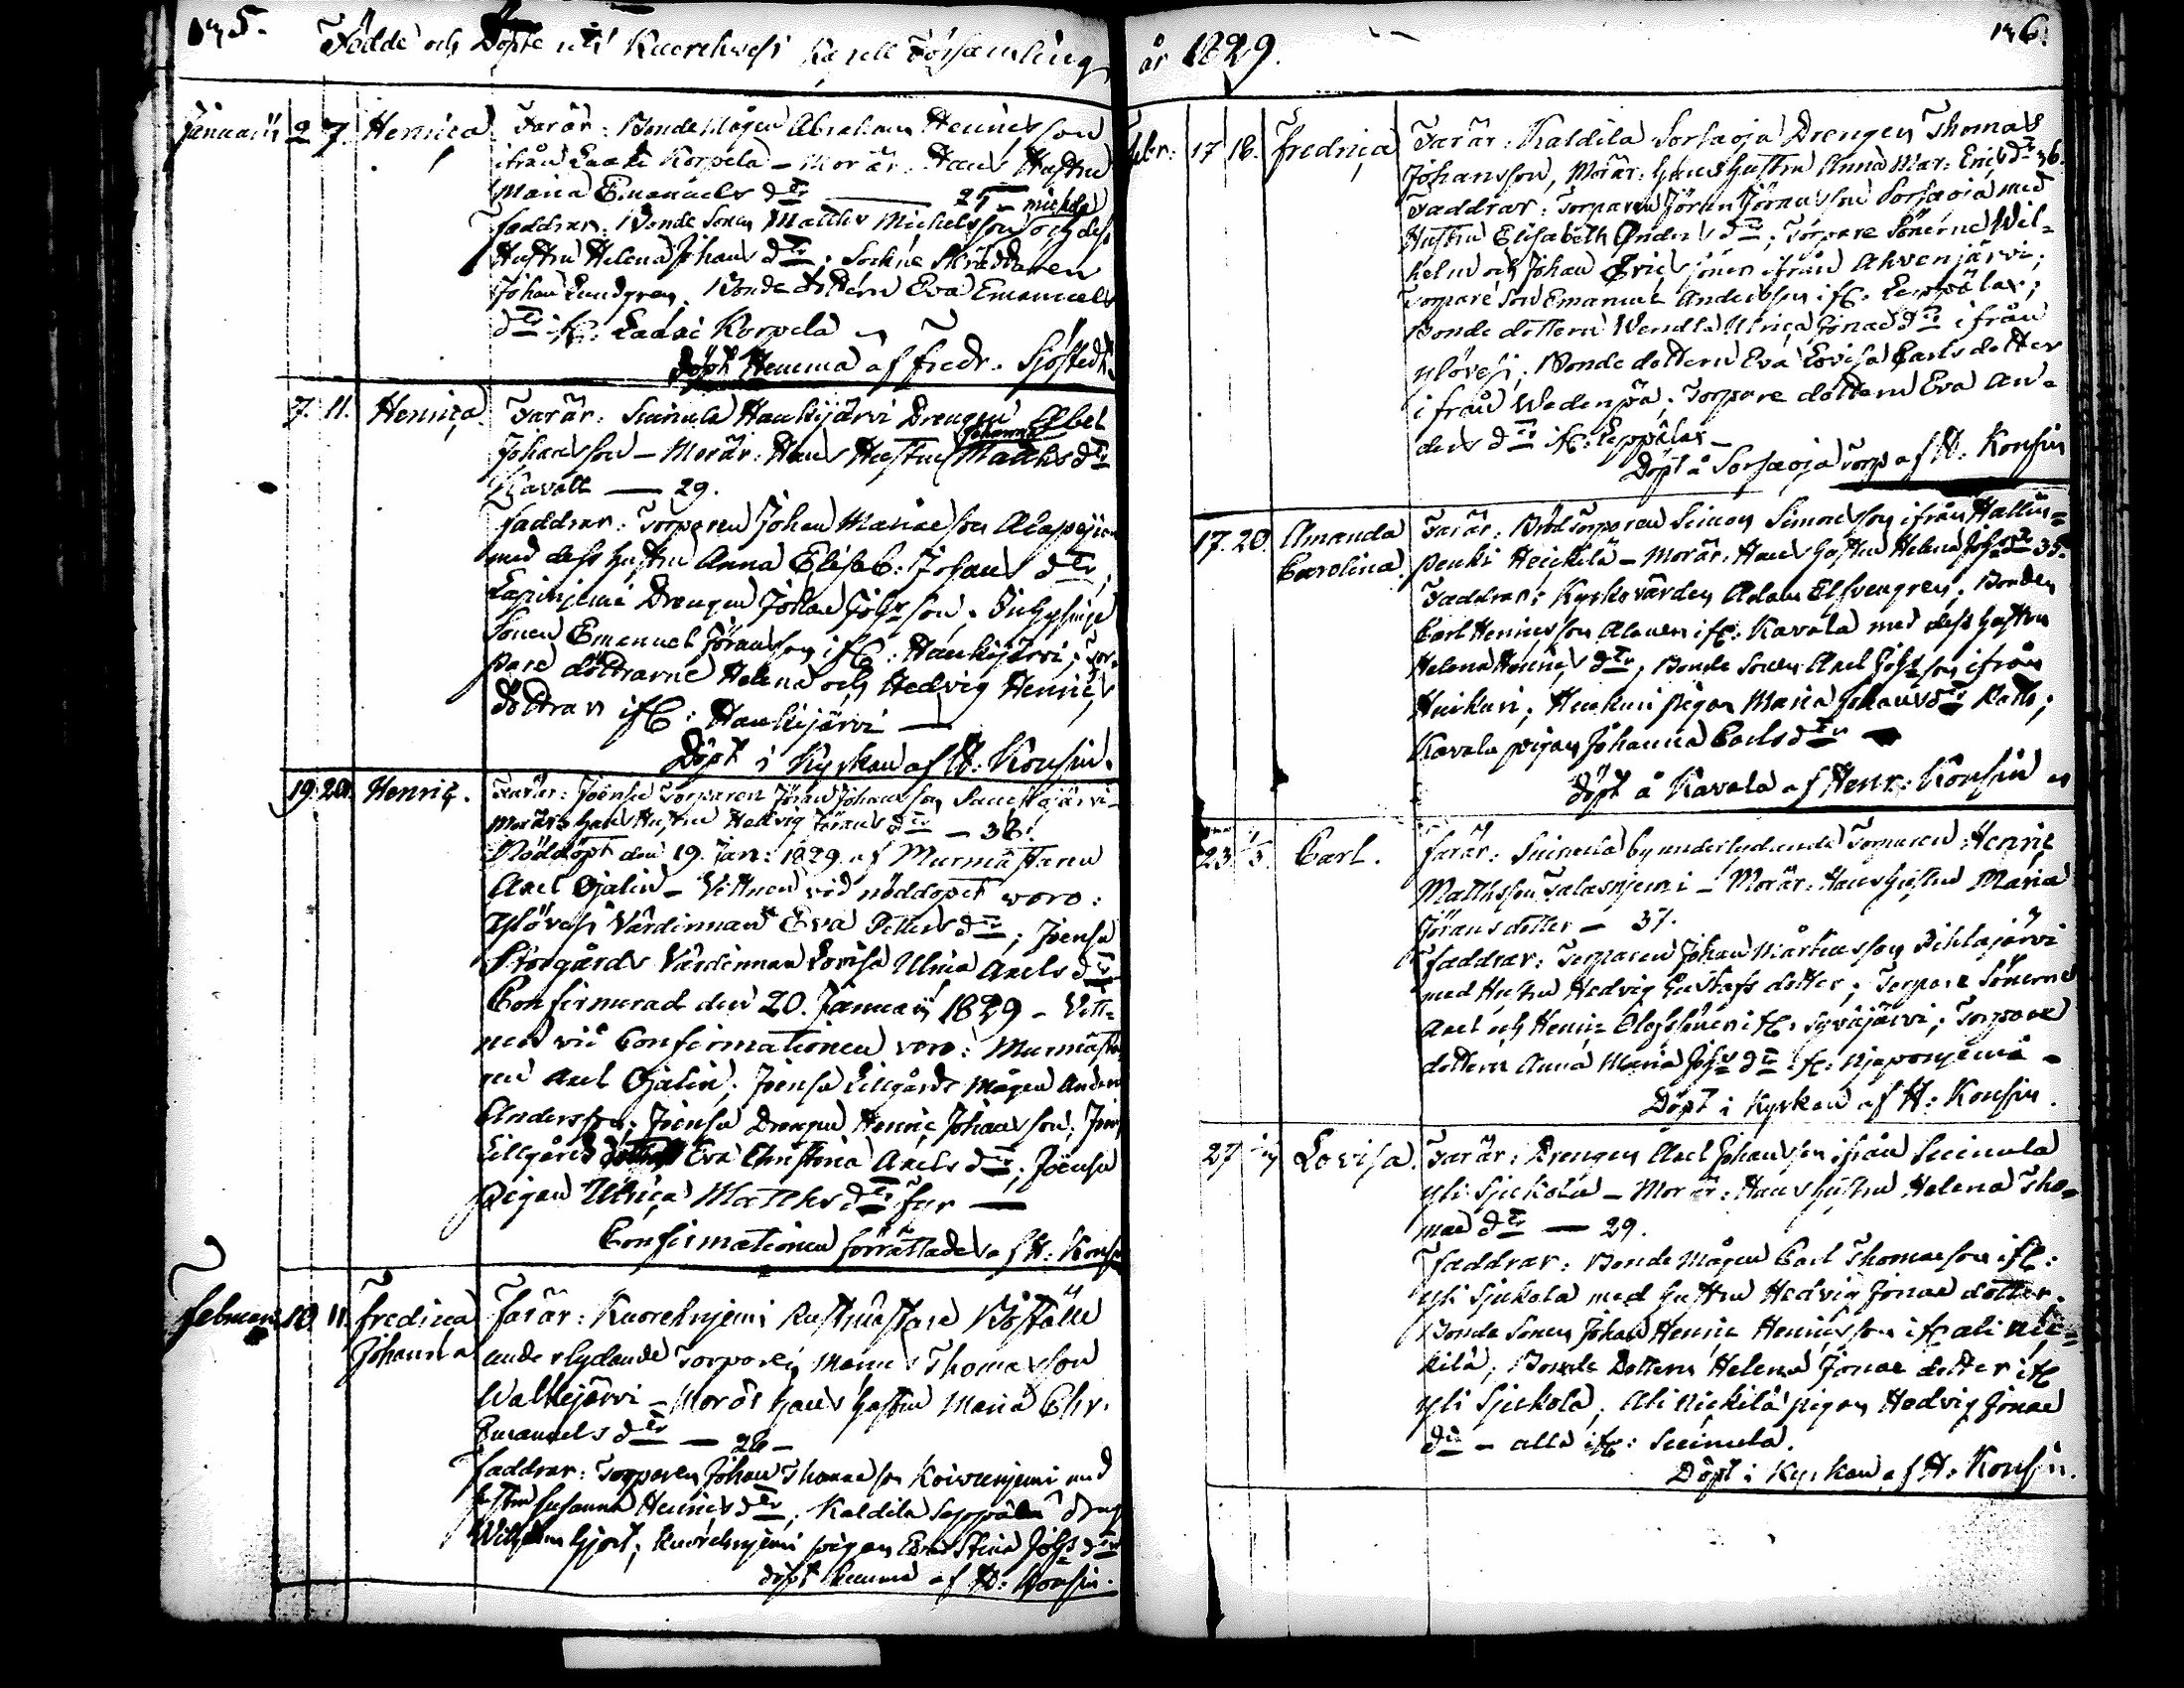 135.
Födde och Döpte uti Kuorehvesi Kapell Församling
Januarii 2 7. Henrica Far är: Bonde Mågen Abraham Henricsson
ifrån Laasi Korpela - Mor är: Hans Hustru
Maria Emanuels dtr — 25 -
Faddrar: Bonde Sonen Matths Michelsson och dess
Hustru Helena Johans dtr. Sockne Skräddaren
Johan Lundgren. Bonde dottern Eva Emanuels
dtr ifr: Korpela
Döpt Hemma af Fredr. Sjöstedt.
7. 11. Henrica. Far är: Suinula Haukijärvi Drengen Abel
Johansson - Mor är: Hans Hustru Johanna Matths dtr
Kavall — 29.
Faddrar: Torparen Johan Mariae son
med dess hustru Anna Elisab: Johans dtr,
Lapinjemi Drengen Johan Johsson. Inhyses
Sonen Emanuel Göransson ifr: Haukijärvi; Tor-
pare döttrarne Helena och Hedvig Henrics
döttrar ifr: Haukijärvi —
Döpt i Kyrkan af H: Konsin.
19. 20. Henric. Far är: Joensu Torparen Göran Johansson
Mor är: hans Hustru Hedvig Görans dtr - 38.
Nöddöpt den 19. Jan: 1829. af Murmästaren
Axel Ojalin - Vittnen vid nöddopet woro:
Ylövesi Värdinnan Eva Petters dtr; Joensu
Storgårds Värdinnan Lovisa Ulrica Axels dtr
Confirmerad den 20. Januarii 1829 - Vitt-
nen vid Confirmationen voro: Murmäste
ren Axel Ojalin; Joensu Lillgårds mågen Anders
Andersson; Joensu Drengen Henric Johansson;
Lillgårds Eva Christina Axels dtr; Joensu
pigan Ulrica Matths dtr —
Confirmationen förrättades af H: Konsin
Februarii 10. 11. Fredrica Far är: Kuorehnjemi Rusthållare Boställe
Johanna underlydande Torparen Thomasson
Walkejärvi - Mor är hans hustru Maria Chr.
Emanuels dtr — 28 -
Faddrar: Torparen Johan Thomasson Koivunjemi med
hustru Susanna Henrics dtr; Kaldila Seppälän dreng
Wilhelm Hjort; Kuorehnjemi pigan Stina Johs dtr
döpt hemma af H: Konsin.
år 1829.
136.
Febr: 17 18. Fredrica Far är: Kaldila Sorsaoja Drengen Thomas
Johansson, Mor är: hans hustru Anna Mar: Erics dtr 36.
Faddrar: Torparen Göran Göransson Sorsaoja med
Hustru Elisabeth Anders dtr; Torpare Sönerne Wil-
helm och Johan Ericssöner ifrån Ahvenjärvi;
Torpare Son Emanuel Andersson ifr: Leppälax;
Bonde dottern Wendla Ulrica Jonae dtr ifrån
Ylövesi; Bonde dottern Eva Lovisa Carls dotter
ifrån Wedenpä; Torpare dottern Eva An-
ders dtr ifr: Leppälax -
Döpt å Sorsaoja Torp af H: Konsin
17. 20. Amanda Far är: Torparen Simon Simonsson ifrån Hallin-
Carolina. penki Heickilä - Mor är: Hans hustru Helena Johs dtr 35.
Faddrar: Kyrkovärden Adam Elfvengren. Bonden
Carl Henricsson ifr: Kavala med dess hustru
Helena Henrics dtr; Bonde Sonen Axel Johsson ifrån
Huikuri; Huikuri pigan Maria Johans dtr;
Kavala pigan Johanna Carls dtr —
Döpt å Kavala af Henr: Konsin
23. 1/3. Carl. Far är: Suinula by underlydande Torparen Henric
Matthsson Salasnjemi - Mor är: Hans hustru Maria
Görans dotter - 37.
Faddrar: Torparen Johan Mårtensson Pihlajärvi
med Hustru Hedvig Gustafs dotter; Torpare Sönerne
Axel och Henric Olofssöner ifr: Syväjärvi; Torpare
dottern Anna Maria Johs dtr ifr: -
Döpt i Kyrkan af H: Konsin.
27 Lovisa. Far är: Drengen Axel Johansson ifrån Suinula
Yli Sjukola - Mor är: Hans hustru Helena Tho-
mae dtr — 29.
Faddrar: Bonde Mågen Carl Thomasson ifr:
Yli Sjukola med hustru Hedvig Jonae dotter.
Bonde Sonen Johan Henric Henricsson ifr Ali Nic-
kilä; Bonde Dottern Helena Jonae dotter ifr
Yli Sjukola; Ali Nickilä pigan Hedvig Jonae
dtr - alla ifr: Suinula.
Döpt i Kyrkan af H: Konsin.